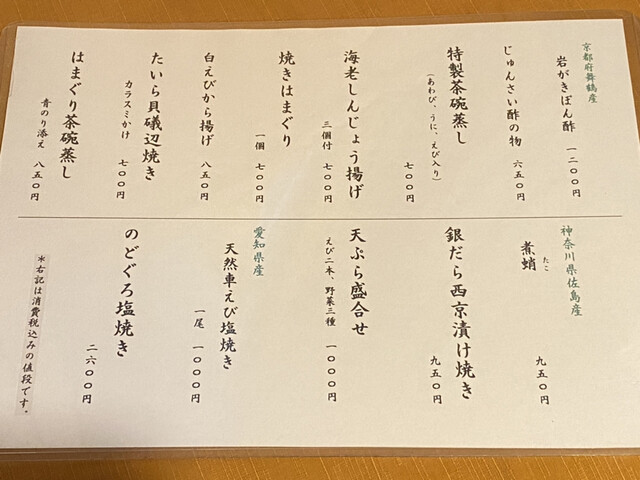 京都府舞鶴産
岩がきぽん酢
一二〇〇円
じゅんさい酢の物
六五〇円
特製茶碗蒸し
(あわび、うに、えび入り)
七〇〇円
海老しんじょう揚げ
三個付 七〇〇円
焼きはまぐり
一個 七〇〇円
白えびから揚げ
八五〇円
たいら貝磯辺焼き
カラスミかけ 七〇〇円
はまぐり茶碗蒸し
青のり添え 八五〇円
神奈川県佐島産
煮蛸
たこ
九五〇円
銀だら西京漬け焼き
九五〇円
天ぷら盛合せ
えび二本、野菜三種 一〇〇〇円
愛知県産
天然車えび塩焼き
一尾 一〇〇〇円
のどぐろ塩焼き
二六〇〇円
*右記は消費税込みの値段です。